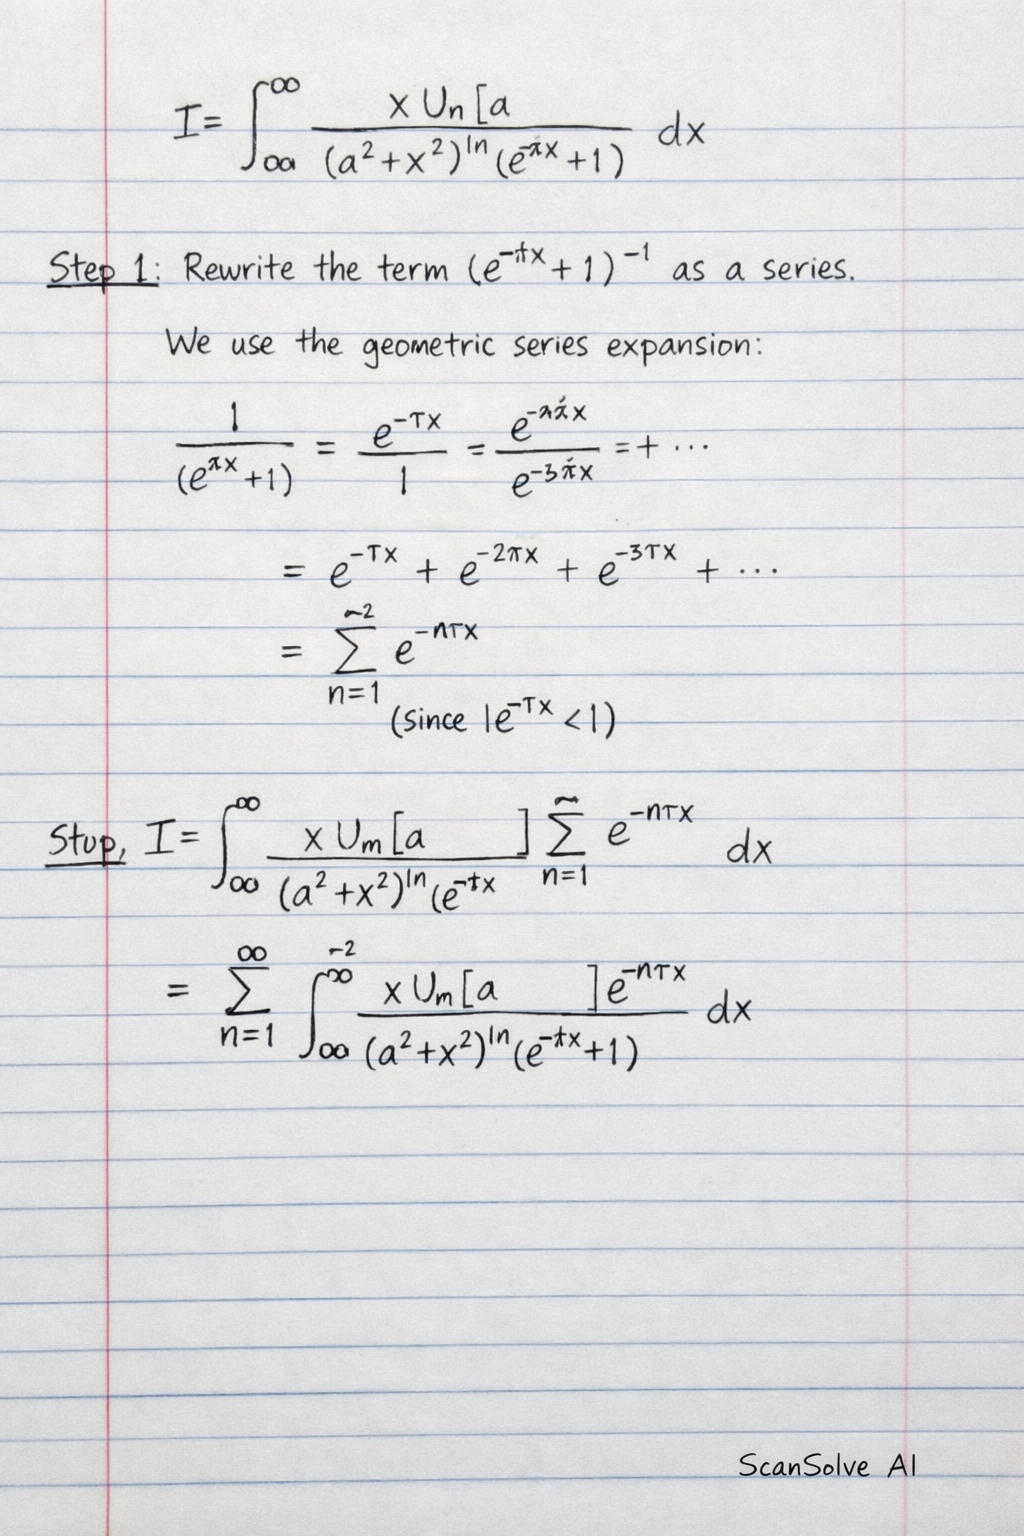 I = ∫_∞^∞ x Un [a / (a² + x²)^ln (e^-πx + 1) dx
Step 1: Rewrite the term (e^-tx + 1)^-1 as a series.
We use the geometric series expansion:
1 / (e^πx + 1) = e^-Tx / 1 = e^-ππx / e^-3πx = + ...
= e^-Tx + e^-2πx + e^-3Tx + ...
= ∑_{n=1}^{~2} e^-nτx
(since |e^-Tx < 1)
Stup, I = ∫_∞^∞ x Um [a ] / (a² + x²)^ln (e^-tx ∑_{n=1}^~ e^-nτx dx
= ∑_{n=1}^∞ ∫_∞^∞ -2 x Um [a ] e^-nτx / (a² + x²)^ln (e^-tx + 1) dx
ScanSolve AI